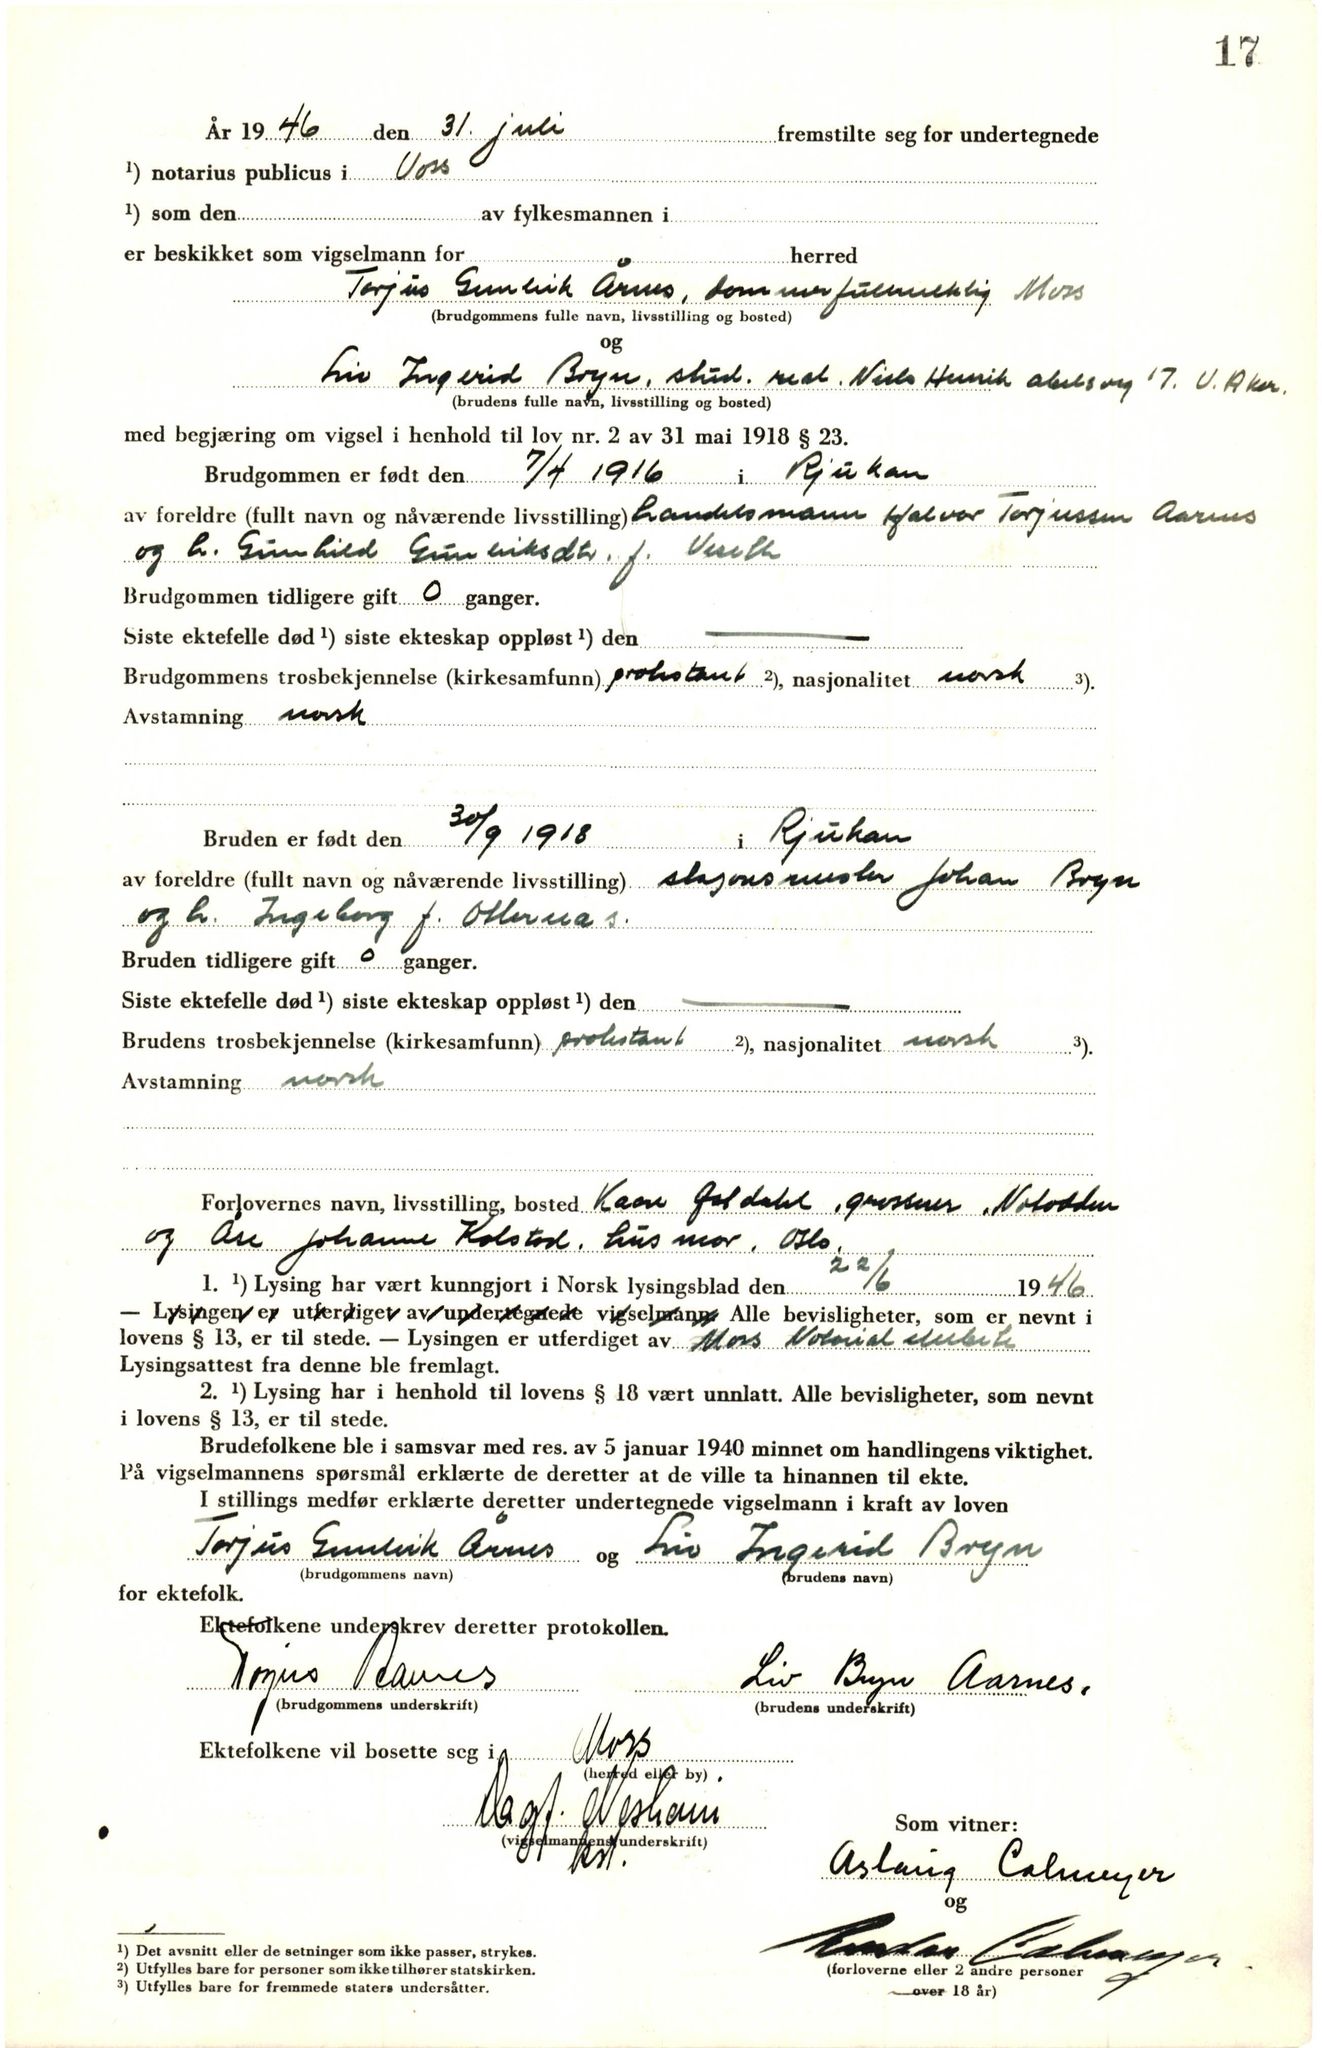 17
År 1946 den 31. juli fremstilte seg for undertegnede
1) notarius publicus i Voss
1) som den av fylkesmannen i
er beskikket som vigselmann for herred
Torjus Gunleik Årnes, dommerfullmektig Moss
(brudgommens fulle navn, livsstilling og bosted)
og
Liv Ingerid Bryn, stud. real. Niels Henrik Abelsveg 17. V. Aker.
(brudens fulle navn, livsstilling og bosted)
med begjæring om vigsel i henhold til lov nr. 2 av 31 mai 1918 § 23.
Brudgommen er født den 7/4 1916 i Rjukan
av foreldre (fullt navn og nåværende livsstilling) handelsmann Halvor Torjussen Aarnes
og h. Gunhild Gunleiksdtr. f. Veseth
Brudgommen tidligere gift 0 ganger.
Siste ektefelle død 1) siste ekteskap oppløst 1) den
Brudgommens trosbekjennelse (kirkesamfunn) protestant 2), nasjonalitet norsk 3).
Avstamning norsk
Bruden er født den 30/9 1918 i Rjukan
av foreldre (fullt navn og nåværende livsstilling) stasjonsmester Johan Bryn
og h. Ingeborg f. Olsernas.
Bruden tidligere gift 0 ganger.
Siste ektefelle død 1) siste ekteskap oppløst 1) den
Brudens trosbekjennelse (kirkesamfunn) protestant 2), nasjonalitet norsk 3).
Avstamning norsk
Forlovernes navn, livsstilling, bosted Kaare grosserer, Notodden
og Åse Johanne Kolstad, husmor, Oslo.
1. 1) Lysing har vært kunngjort i Norsk lysingsblad den 22/6 1946
— Lysingen er utferdiget av undertegnede vigselmann. Alle bevisligheter, som er nevnt i
lovens § 13, er til stede. — Lysingen er utferdiget av Moss Notarialembete
Lysingsattest fra denne ble fremlagt.
2. 1) Lysing har i henhold til lovens § 18 vært unnlatt. Alle bevisligheter, som nevnt
i lovens § 13, er til stede.
Brudefolkene ble i samsvar med res. av 5 januar 1940 minnet om handlingens viktighet.
På vigselmannens spørsmål erklærte de deretter at de ville ta hinannen til ekte.
I stillings medfør erklærte deretter undertegnede vigselmann i kraft av loven
Torjus Gunleik Årnes og Liv Ingerid Bryn
(brudgommens navn) (brudens navn)
for ektefolk.
Ektefolkene underskrev deretter protokollen.
Torjus Aarnes Liv Bryn Aarnes.
(brudgommens underskrift) (brudens underskrift)
Ektefolkene vil bosette seg i Moss
(herred eller by)
Dagf. Nesheim
(vigselmannens underskrift)
kst.
Som vitner:
Aslaug Calmeyer
og
Calmeyer
(forloverne eller 2 andre personer
over 18 år)
1) Det avsnitt eller de setninger som ikke passer, strykes.
2) Utfylles bare for personer som ikke tilhører statskirken.
3) Utfylles bare for fremmede staters undersåtter.